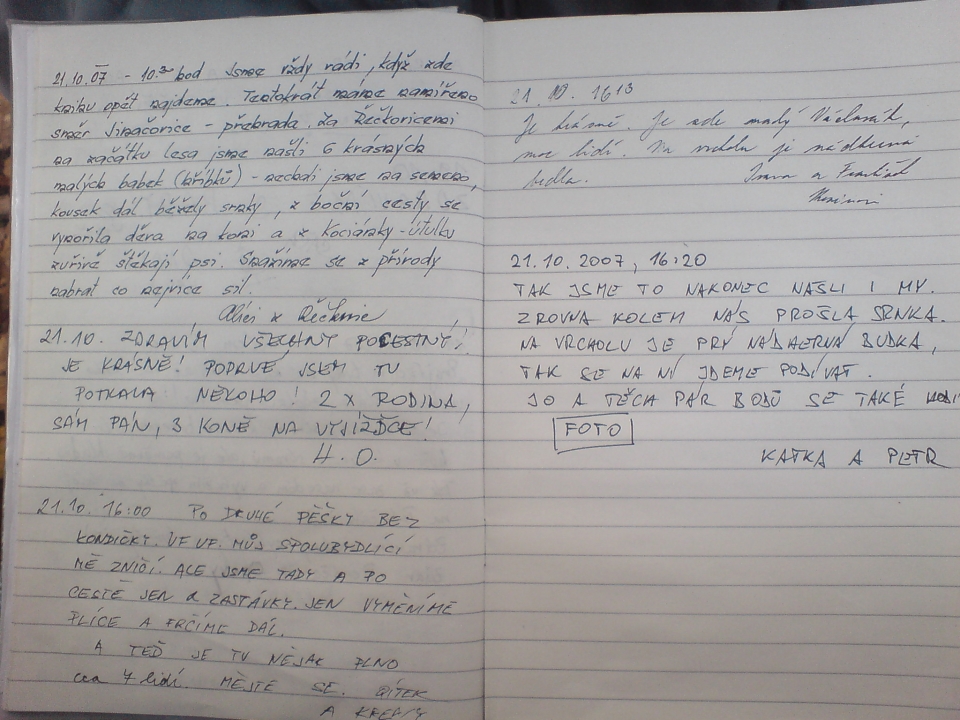 21.10.07 - 10.- bod Jsme vždy rádi, když zde
knihu opět najdeme. Tentokrát máme namířeno
směr Jinačovice - přehrada. Za Řečkovicemi
na začátku lesa jsme našli 6 krásných
malých babek (hříbků) - nechali jsme na semeno,
kousek dál běžely srnky, z boční cesty se
vynořila děva na koni a z Kociánky - útulku
zuřivě štěkají psi. Snažíme se z přírody
nabrat co nejvíce sil.
z
21.10. ZDRAVÍM VŠECHNY POCESTNÝ!
JE KRÁSNĚ! POPRVÉ JSEM TU
POTKALA NĚKOHO! 2 X RODINA,
SÁM PÁN, 3 KONĚ NA VYJÍŽĎCE!
H. O.
21.10. 16:00 PO DRUHÉ PĚŠKY BEZ
KONDIČKY. UF UF. MŮJ SPOLUBYDLÍCÍ
MĚ ZNIČÍ. ALE JSME TADY A PO
CESTĚ JEN 2 ZASTÁVKY. JEN VYMĚNÍME
PLÍCE A FRČÍME DÁL.
A TEĎ JE TU NĚJAK PLNO
cca 7 lidí. MĚJTE SE.
A
21. 10. 16 13
Je krásně. Je zde madý Václavák,
moc lidí. Na vrcholu je nádherná
bedla. a
21.10.2007, 16:20
TAK JSME TO NAKONEC NAŠLI I MY.
ZROVNA KOLEM NÁS PROŠLA SRNKA.
NA VRCHOLU JE PRÝ NÁDHERNÁ BUDKA,
TAK SE NA NÍ JDEME PODÍVAT.
JO A TĚCH PÁR BODŮ SE TAKÉ HODÍ
FOTO
KATKA A PETR